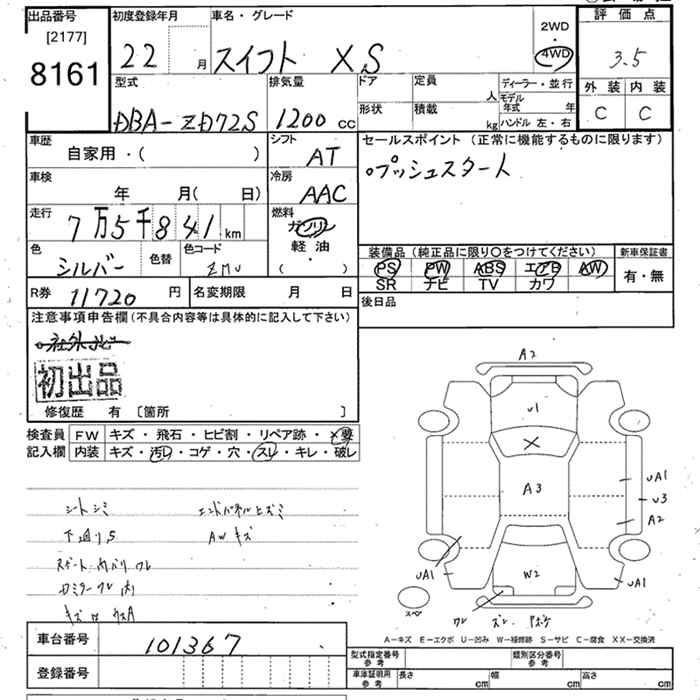 出品番号
[2177]
8161
初度登録年月
22 月
車名・グレード
スイフト XS
2WD
4WD
評価点
3.5
外装 内装
C C
型式
DBA-ZD72S
排気量
1200 cc
ドア
形状
定員 人
積載 kg
ディーラー・並行
モデル年式 年
ハンドル 左・右
車歴
自家用・( )
シフト
AT
車検
年 月( 日)
冷房
AAC
走行
7万5千841 km
燃料
ガソリン
軽油
( )
色
シルバー
色替
色コード
セールスポイント(正常に機能するものに限ります)
プッシュスタート
装備品(純正品に限り○をつけてください)
PS PW ABS エアB AW
SR ナビ TV カワ
新車保証書
有・無
R券 11720 円
名変期限 月 日
後日品
注意事項申告欄(不具合内容等は具体的に記入して下さい)
初出品
修復歴 有 [箇所 ]
検査員記入欄
FW キズ・飛石・ヒビ割・リペア跡・×要
内装 キズ・汚レ・コゲ・穴・スレ・キレ・破レ
シートシミ
エンドパネルヒズミ
下廻りS
AWキズ
A2
U1
X
A3
UA1
U3
A2
UA1
W2
UA1
スペア
A-キズ E-エクボ U-凹み W-補修跡 S-サビ C-腐食 XX-交換済
車台番号
101367
登録番号
型式指定番号
参考
類別区分番号
参考
車庫証明用
参考
長さ cm
幅 cm
高さ cm